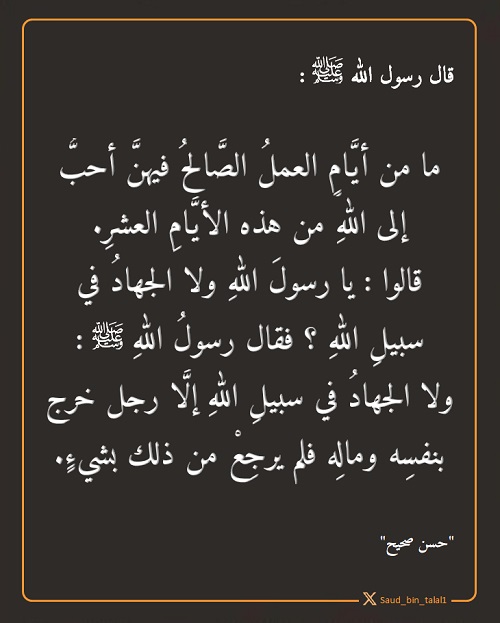 قال رسول الله ﷺ :
ما من أيَّامٍ العملُ الصَّالحُ فيهنَّ أحبُّ
إلى اللهِ من هذه الأيَّامِ العشرِ.
قالوا : يا رسولَ اللهِ ولا الجهادُ في
سبيلِ اللهِ ؟ فقال رسولُ اللهِ ﷺ :
ولا الجهادُ في سبيلِ اللهِ إلَّا رجل خرج
بنفسِه ومالِه فلم يرجِعْ من ذلك بشيءٍ.
"حسن صحيح"
X Saud_bin_talal1